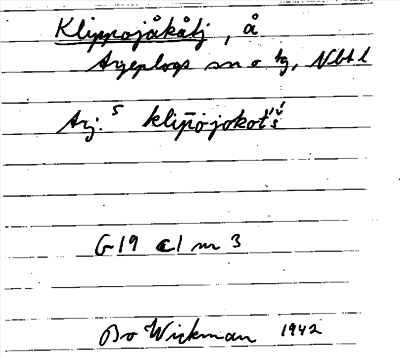 Klippojåkåtj, å
Arjeplogs sn o tg, Nbt l
Arj. 5 klip̄ojokot́š́
G 19 c1 nr 3
Bo Wickman 1942